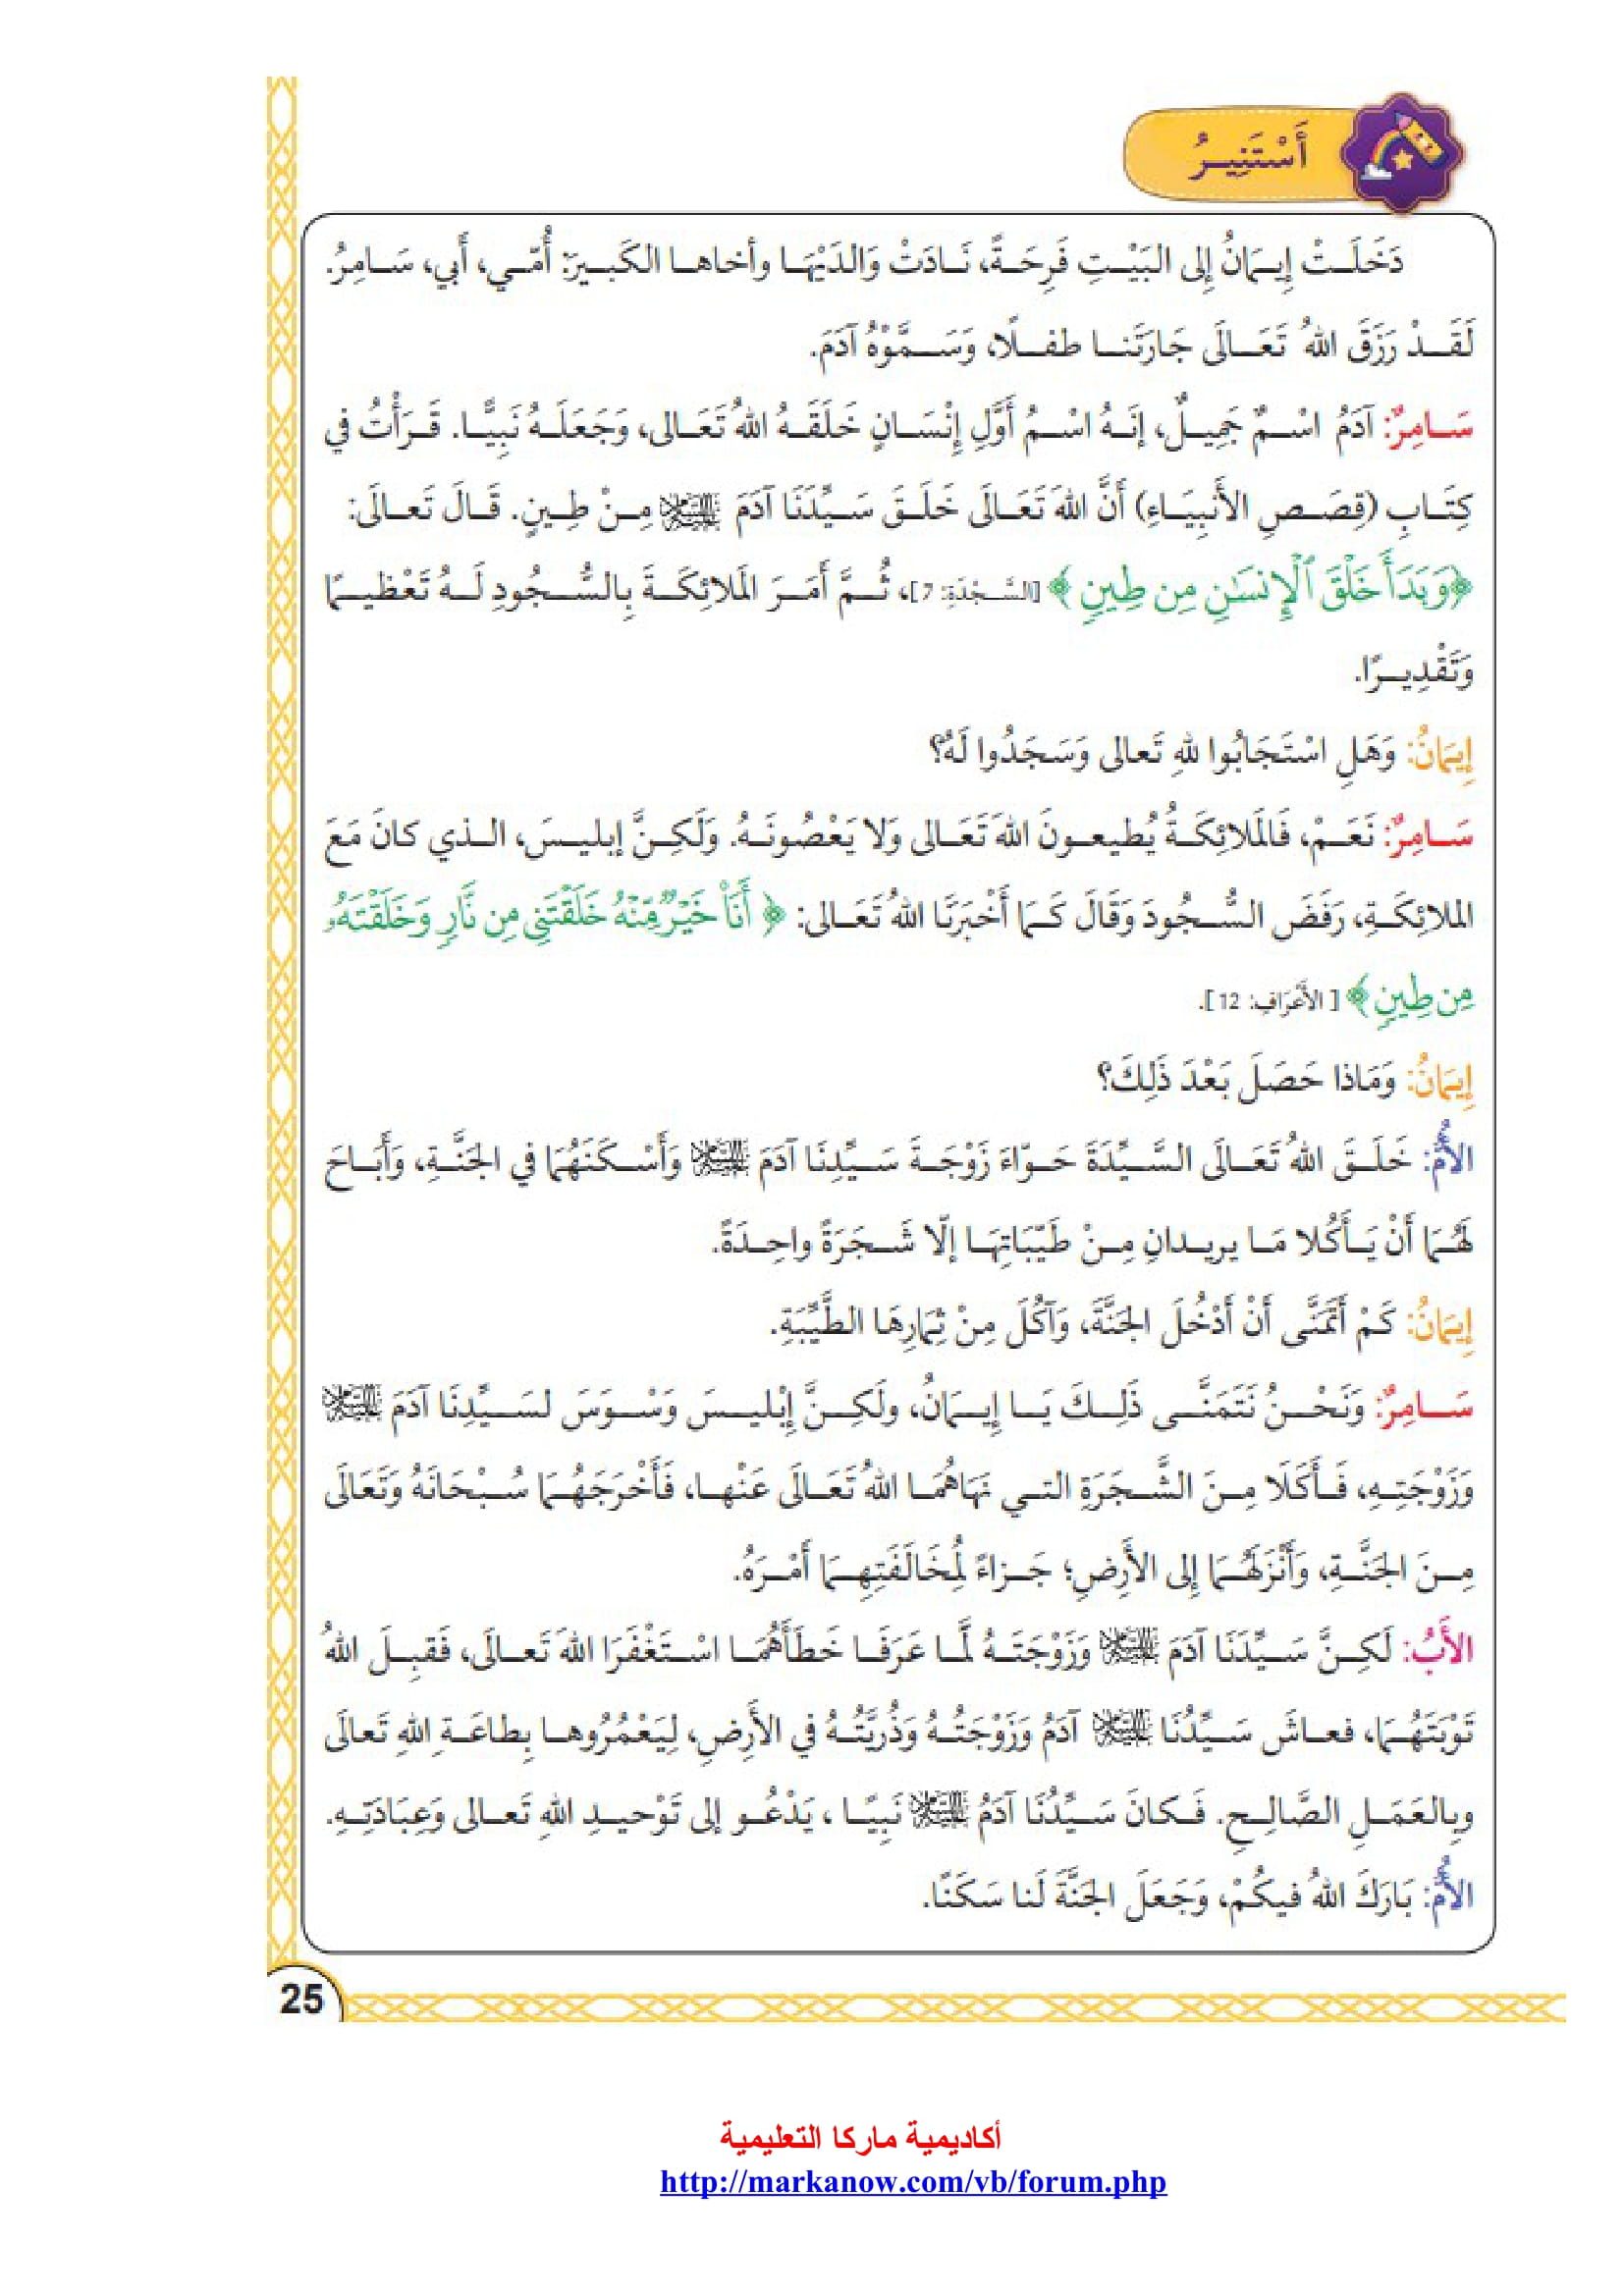 أَسْتَنِيرُ
دَخَلَتْ إِيمَانُ إِلى البَيْتِ فَرِحَةً، نَادَتْ وَالدَيْهَا وأخاها الكَبيرَ: أُمّي، أَبي، سَامِرُ.
لَقَدْ رَزَقَ اللهُ تَعَالَى جَارَتَنا طفلًا، وَسَمَّوْهُ آدَمَ.
سَامِرٌ: آدَمُ اسْمٌ جَمِيلٌ، إنَهُ اسْمُ أَوَّلِ إِنْسَانٍ خَلَقَهُ اللهُ تَعَالى، وَجَعَلَهُ نَبِيًّا. قَرَأْتُ في
كِتَابِ (قِصَصِ الأَنبِيَاءِ) أَنَّ اللهَ تَعَالَى خَلَقَ سَيِّدَنَا آدَمَ عَلَيْهِ السَّلَامُ مِنْ طِينٍ. قَالَ تَعالَى:
﴿وَبَدَأَ خَلْقَ ٱلْإِنسَٰنِ مِن طِينٍ﴾ [السَّجْدَةِ: 7]، ثُمَّ أَمَرَ المَلائِكَةَ بِالسُّجُودِ لَهُ تَعْظيمًا
وَتَقْدِيرًا.
إِيمَانُ: وَهَلِ اسْتَجَابُوا للهِ تَعالى وَسَجَدُوا لَهُ؟
سَامِرٌ: نَعَمْ، فَالمَلائِكَةُ يُطيعونَ اللهَ تَعَالى وَلا يَعْصُونَهُ. وَلَكِنَّ إبليسَ، الذي كانَ مَعَ
الملائِكَةِ، رَفَضَ السُّجُودَ وَقَالَ كَمَا أَخْبَرَنَا اللهُ تَعَالى: ﴿ أَنَا۠ خَيْرٌ مِّنْهُ خَلَقْتَنِي مِن نَّارٍ وَخَلَقْتَهُۥ
مِن طِينٍ﴾ [ الأَعْرَافِ: 12 ].
إِيمَانُ: وَمَاذا حَصَلَ بَعْدَ ذَلِكَ؟
الأُمُّ: خَلَقَ اللهُ تَعَالَى السَّيِّدَةَ حَوّاءَ زَوْجَةَ سَيِّدِنَا آدَمَ عَلَيْهِ السَّلَامُ وَأَسْكَنَهُمَا في الجَنَّةِ، وَأَبَاحَ
لَهُمَا أَنْ يَأَكُلا مَا يريدانِ مِنْ طَيِّبَاتِهَا إلّا شَجَرَةً واحِدَةً.
إِيمَانُ: كَمْ أَتَمَنَّى أَنْ أَدْخُلَ الجَنَّةَ، وَآكُلَ مِنْ ثِمَارِهَا الطَّيِّبَةِ.
سَامِرٌ: وَنَحْنُ نَتَمَنَّى ذَلِكَ يَا إِيمَانُ، ولَكِنَّ إِبْليسَ وَسْوَسَ لسَيِّدِنَا آدَمَ عَلَيْهِ السَّلَامُ
وَزَوْجَتِهِ، فَأَكَلَا مِنَ الشَّجَرَةِ التي نَهَاهُمَا اللهُ تَعَالَى عَنْها، فَأَخْرَجَهُمَا سُبْحَانَهُ وَتَعَالَى
مِنَ الجَنَّةِ، وَأَنْزَلَهُمَا إِلى الأَرِضِ؛ جَزاءً لِمُخَالَفَتِهِمَا أَمْرَهُ.
الأَبُ: لَكِنَّ سَيِّدَنَا آدَمَ عَلَيْهِ السَّلَامُ وَزَوْجَتَهُ لَمَّا عَرَفَا خَطَأَهُمَا اسْتَغْفَرَا اللهَ تَعالَى، فَقبِلَ اللهُ
تَوْبَتَهُمَا، فعاشَ سَيِّدُنَا عَلَيْهِ السَّلَامُ آدَمُ وَزَوْجَتُهُ وَذُرِّيَّتُهُ في الأَرِضِ، لِيَعْمُرُوها بِطاعَةِ اللهِ تَعالَى
وبِالعَمَلِ الصَّالِحِ. فَكانَ سَيِّدُنَا آدَمُ عَلَيْهِ السَّلَامُ نَبِيًا ، يَدْعُو إلى تَوْحيدِ اللهِ تَعالى وَعِبَادَتِهِ.
الأُمُّ: بَارَكَ اللهُ فيكُمْ، وَجَعَلَ الجَنَّةَ لَنا سَكَنًا.
25
أكاديمية ماركا التعليمية
http://markanow.com/vb/forum.php